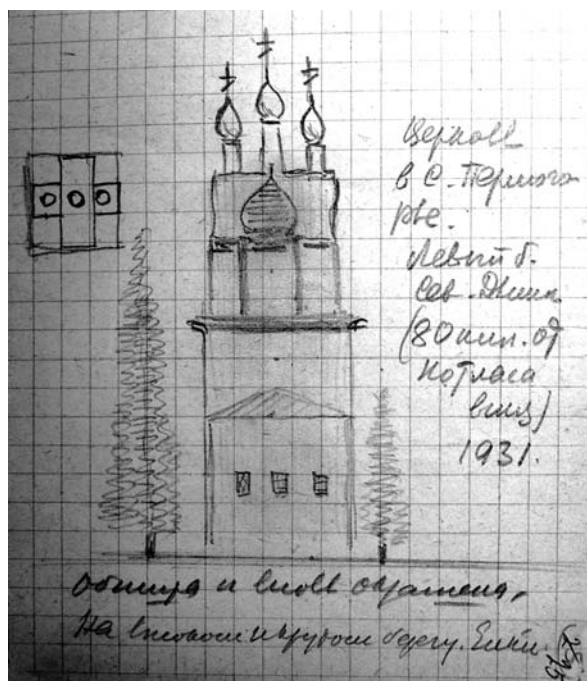 Церковь
в с. Пермого-
рье.
Левый б.
Сев. Двин.
(80 кил. от
Котласа
вниз)
1931.
и вновь окрашена,
На высоком и крутом берегу. Елки.